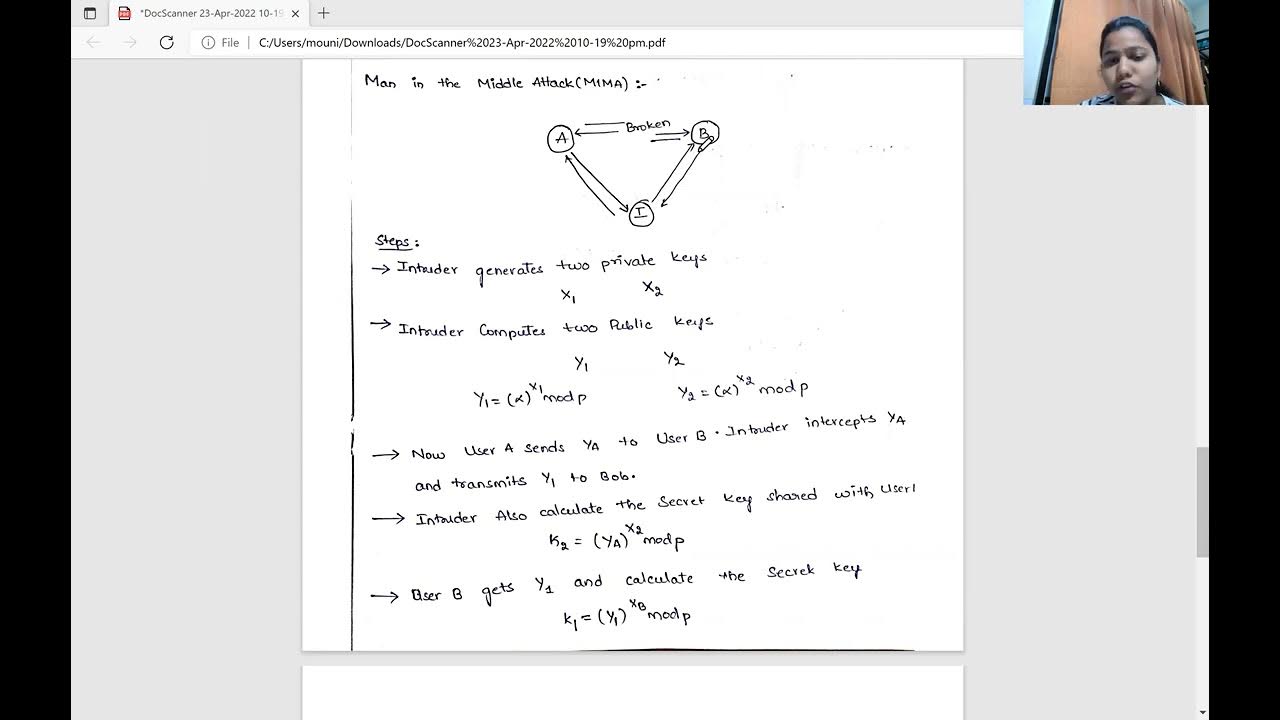 *DocScanner 23-Apr-2022 10-19
File
C:/Users/mouni/Downloads/DocScanner%2023-Apr-2022%2010-19%20pm.pdf
Man in the Middle Attack(MIMA) :-
A Broken B
I
Steps:
→ Intruder generates two private keys
X₁ X₂
→ Intruder Computes two Public keys
Y₁ Y₂
Y₁ = (α)^X₁ mod p Y₂ = (α)^X₂ mod p
→ Now User A sends YA to User B. Intruder intercepts YA
and transmits Y₁ to Bob.
→ Intruder Also calculate the Secret key shared with User1
K₂ = (YA)^X₂ mod p
→ User B gets Y₁ and calculate the Secret key
K₁ = (Y₁)^XB mod p